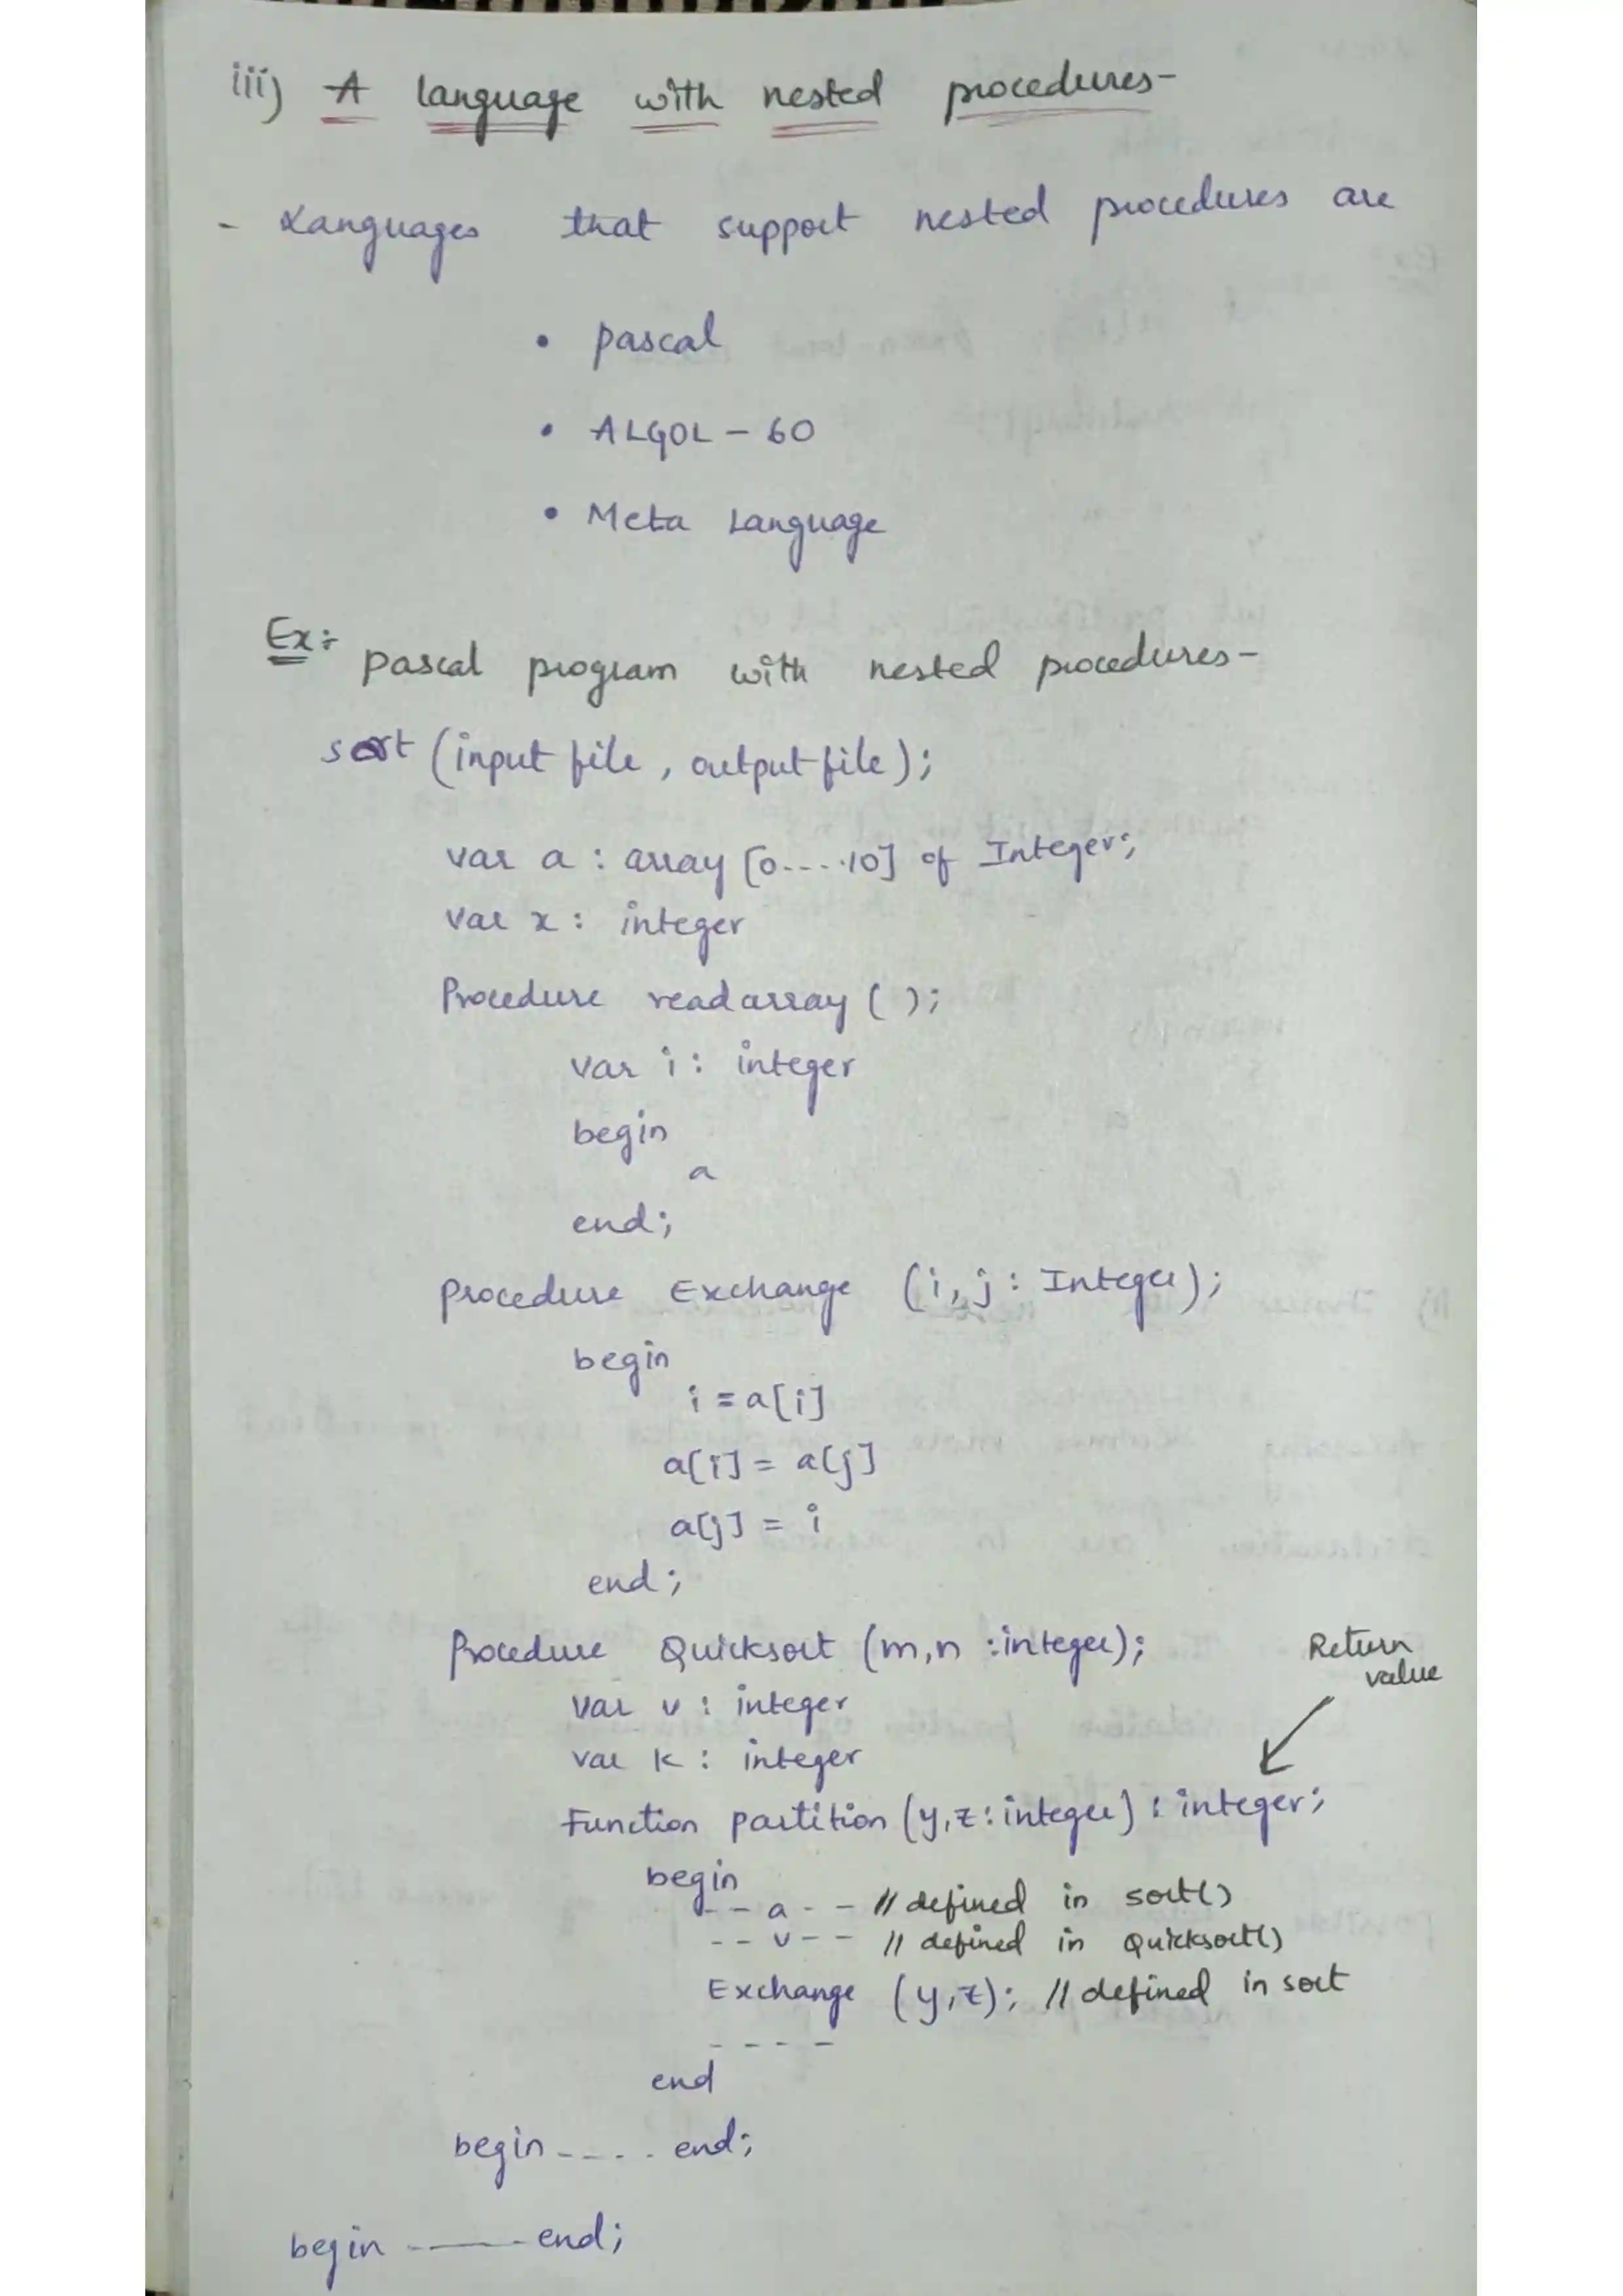 iii) A language with nested procedures-
- Languages that support nested procedures are
• pascal
• ALGOL - 60
• Meta Language
Ex:- pascal program with nested procedures-
sort (input file, output file);
var a : array [0.....10] of Integer;
var x : integer
Procedure readarray ( );
var i : integer
begin
a
end;
procedure Exchange (i, j : Integer);
begin
i = a[i]
a[i] = a[j]
a[j] = i
end;
Procedure Quicksort (m,n : integer);
Return
value
var v : integer
var k : integer
Function partition (y,z : integer) : integer;
begin
- - a - - // defined in sort()
- - v - - // defined in Quicksort()
Exchange (y,z); // defined in sort
- - - -
end
begin - - - - end;
begin ------- end;